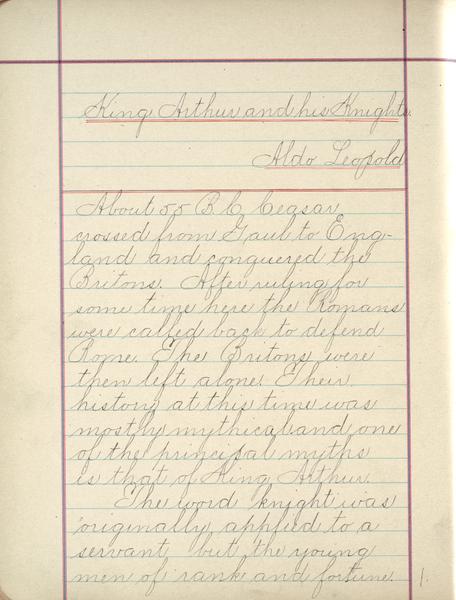 King Arthur and his Knights.
Aldo Leopold
About 55 B.C. Ceasar
crossed from Gaul to Eng-
land and conquered the
Britons. After ruling for
some time here the Romans
were called back to defend
Rome. The Britons were
then left alone. Their
history at this time was
mostly mythical and one
of the principal myths
is that of King Arthur.
The word knight was
originally applied to a
servant but the young
men of rank and fortune
1.